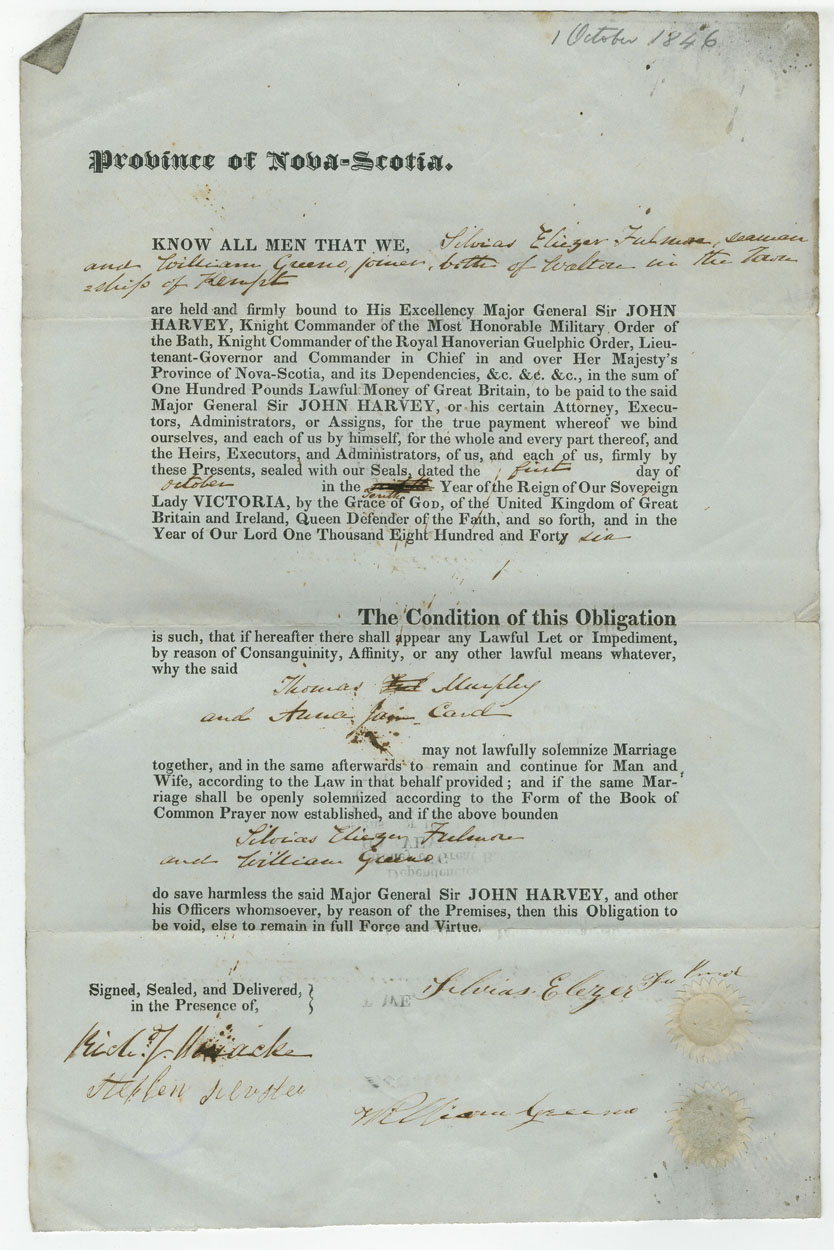 1 October 1846
Province of Nova-Scotia.
KNOW ALL MEN THAT WE, Silvias Eliezer Fulmore, seaman
and William Greeno, joiner, both of Walton in the Town
=ship of Kempt
are held and firmly bound to His Excellency Major General Sir JOHN
HARVEY, Knight Commander of the Most Honorable Military Order of
the Bath, Knight Commander of the Royal Hanoverian Guelphic Order, Lieu-
tenant-Governor and Commander in Chief in and over Her Majesty's
Province of Nova-Scotia, and its Dependencies, &c. &c. &c., in the sum of
One Hundred Pounds Lawful Money of Great Britain, to be paid to the said
Major General Sir JOHN HARVEY, or his certain Attorney, Execu-
tors, Administrators, or Assigns, for the true payment whereof we bind
ourselves, and each of us by himself, for the whole and every part thereof, and
the Heirs, Executors, and Administrators, of us, and each of us, firmly by
these Presents, sealed with our Seals, dated the first day of
October in the Tenth Year of the Reign of Our Sovereign
Lady VICTORIA, by the Grace of GOD, of the United Kingdom of Great
Britain and Ireland, Queen Defender of the Faith, and so forth, and in the
Year of Our Lord One Thousand Eight Hundred and Forty six
The Condition of this Obligation
is such, that if hereafter there shall appear any Lawful Let or Impediment,
by reason of Consanguinity, Affinity, or any other lawful means whatever,
why the said
Thomas Murphy
and Anna Jain Card
may not lawfully solemnize Marriage
together, and in the same afterwards to remain and continue for Man and
Wife, according to the Law in that behalf provided; and if the same Mar-
riage shall be openly solemnized according to the Form of the Book of
Common Prayer now established, and if the above bounden
Silvias Eliezer Fulmore
and William Greeno
do save harmless the said Major General Sir JOHN HARVEY, and other
his Officers whomsoever, by reason of the Premises, then this Obligation to
be void, else to remain in full Force and Virtue.
Signed, Sealed, and Delivered,
in the Presence of,
Silvias Elezer
Rich. J. Uniacke
Stephen
William Greeno